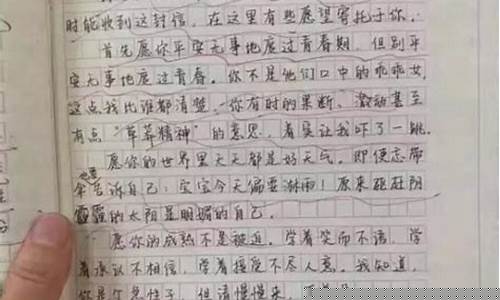 时能收到这封信，在这里有些愿望寄托于你。
首先愿你平安无事地度过青春期，但别平
安无事地度过青春。你不是他们口中的乖乖女，
这点我比谁都清楚，你有时的果断、激动甚至
有点“草莽精神”的意思，着实让我吓了一跳。
愿你的世界里天天都是好天气。即使忘带
伞也要告诉自己：宝宝今天偏要淋雨！原来驱赶阴
霾的太阳是明媚的自己。
愿你的成熟不是被迫。学着笑而不语，学
着承认不相信，学着接受不尽人意。我知道，
你是个急性子，但请慢慢来